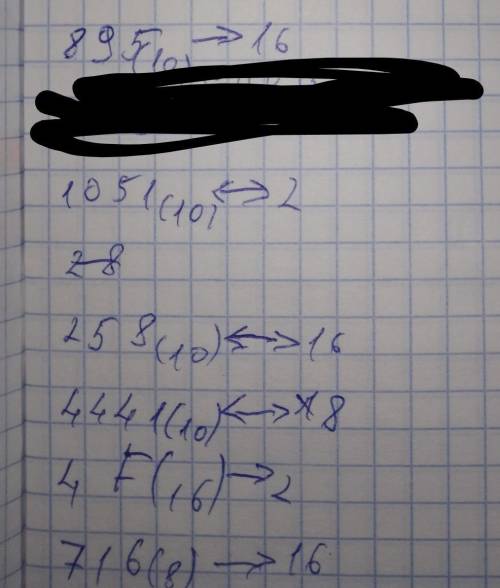 895(10) → 16
1051(10) ↔ 2
258(10) ↔ 16
4441(10) ↔ 8
4 F(16) → 2
716(8) → 16